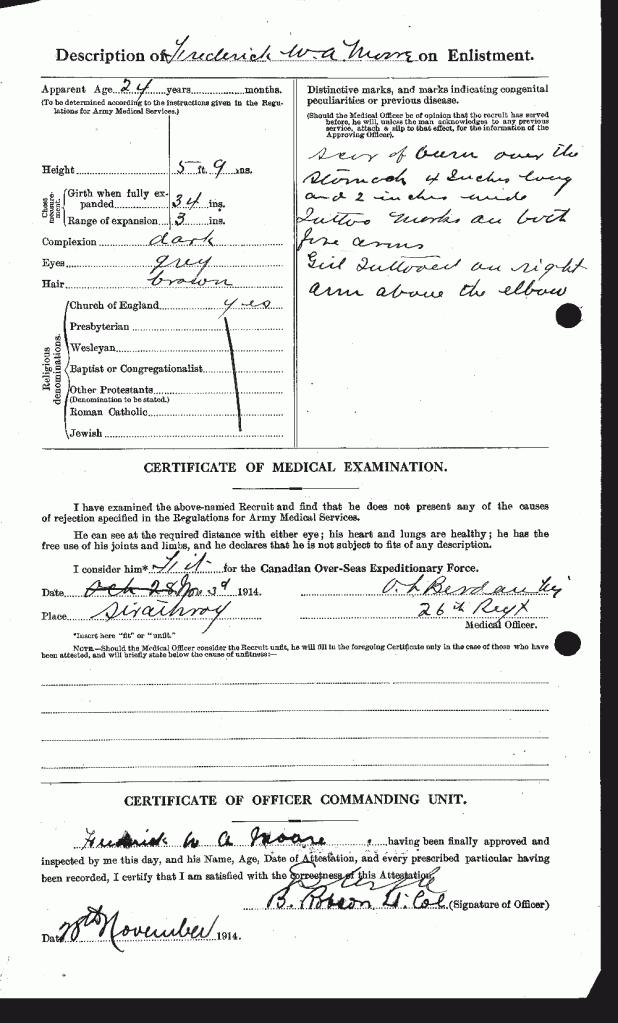 Description of Frederick W A Moore on Enlistment.
Apparent Age 24 years months.
(To be determined according to the instructions given in the Regulations for Army Medical Services.)
Height 5 ft. 9 ins.
Chest measurement.
Girth when fully expanded 34 ins.
Range of expansion 3 ins.
Complexion dark
Eyes grey
Hair brown
Religious denominations.
Church of England yes
Presbyterian
Wesleyan
Baptist or Congregationalist
Other Protestants
(Denomination to be stated.)
Roman Catholic
Jewish
Distinctive marks, and marks indicating congenital
peculiarities or previous disease.
(Should the Medical Officer be of opinion that the recruit has served
before, he will, unless the man acknowledges to any previous
service, attach a slip to that effect, for the information of the
Approving Officer).
scar of burn over the
stomach 4 Inches long
and 2 inches wide
Tattoo marks on both
fore arms
Girl Tattooed on right
arm above the elbow
CERTIFICATE OF MEDICAL EXAMINATION.
I have examined the above-named Recruit and find that he does not present any of the causes
of rejection specified in the Regulations for Army Medical Services.
He can see at the required distance with either eye; his heart and lungs are healthy; he has the
free use of his joints and limbs, and he declares that he is not subject to fits of any description.
I consider him* Fit for the Canadian Over-Seas Expeditionary Force.
Date Oct 28 Nov 1914.
Place Strathroy
26th Regt
Medical Officer.
*Insert here "fit" or "unfit."
NOTE.—Should the Medical Officer consider the Recruit unfit, he will fill in the foregoing Certificate only in the case of those who have
been attested, and will briefly state below the cause of unfitness:—
CERTIFICATE OF OFFICER COMMANDING UNIT.
Frederick W A Moore having been finally approved and
inspected by me this day, and his Name, Age, Date of Attestation, and every prescribed particular having
been recorded, I certify that I am satisfied with the correctness of this Attestation.
B. Robson Lt. Col (Signature of Officer)
Date 28th November 1914.